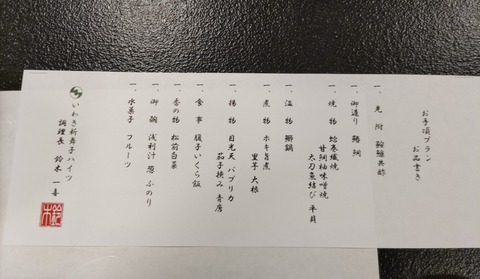 お手頃プラン
お品書き
一、先 附 鮟鱇共酢
一、御造り 鰆 鯛
一、焼 物 鮭巻繊焼
甘鯛柚味噌焼
太刀魚結び 平貝
一、温 物 鰤鍋
一、煮 物 ホキ旨煮
里芋 大根
一、揚 物 目光天 パプリカ
茄子挟み 青唐
一、食 事 親子いくら飯
一、香の物 松前白菜
一、御 椀 浅利汁 葱 ふのり
一、水菓子 フルーツ
いわき新舞子ハイツ
調理長 鈴木 一喜
鈴木